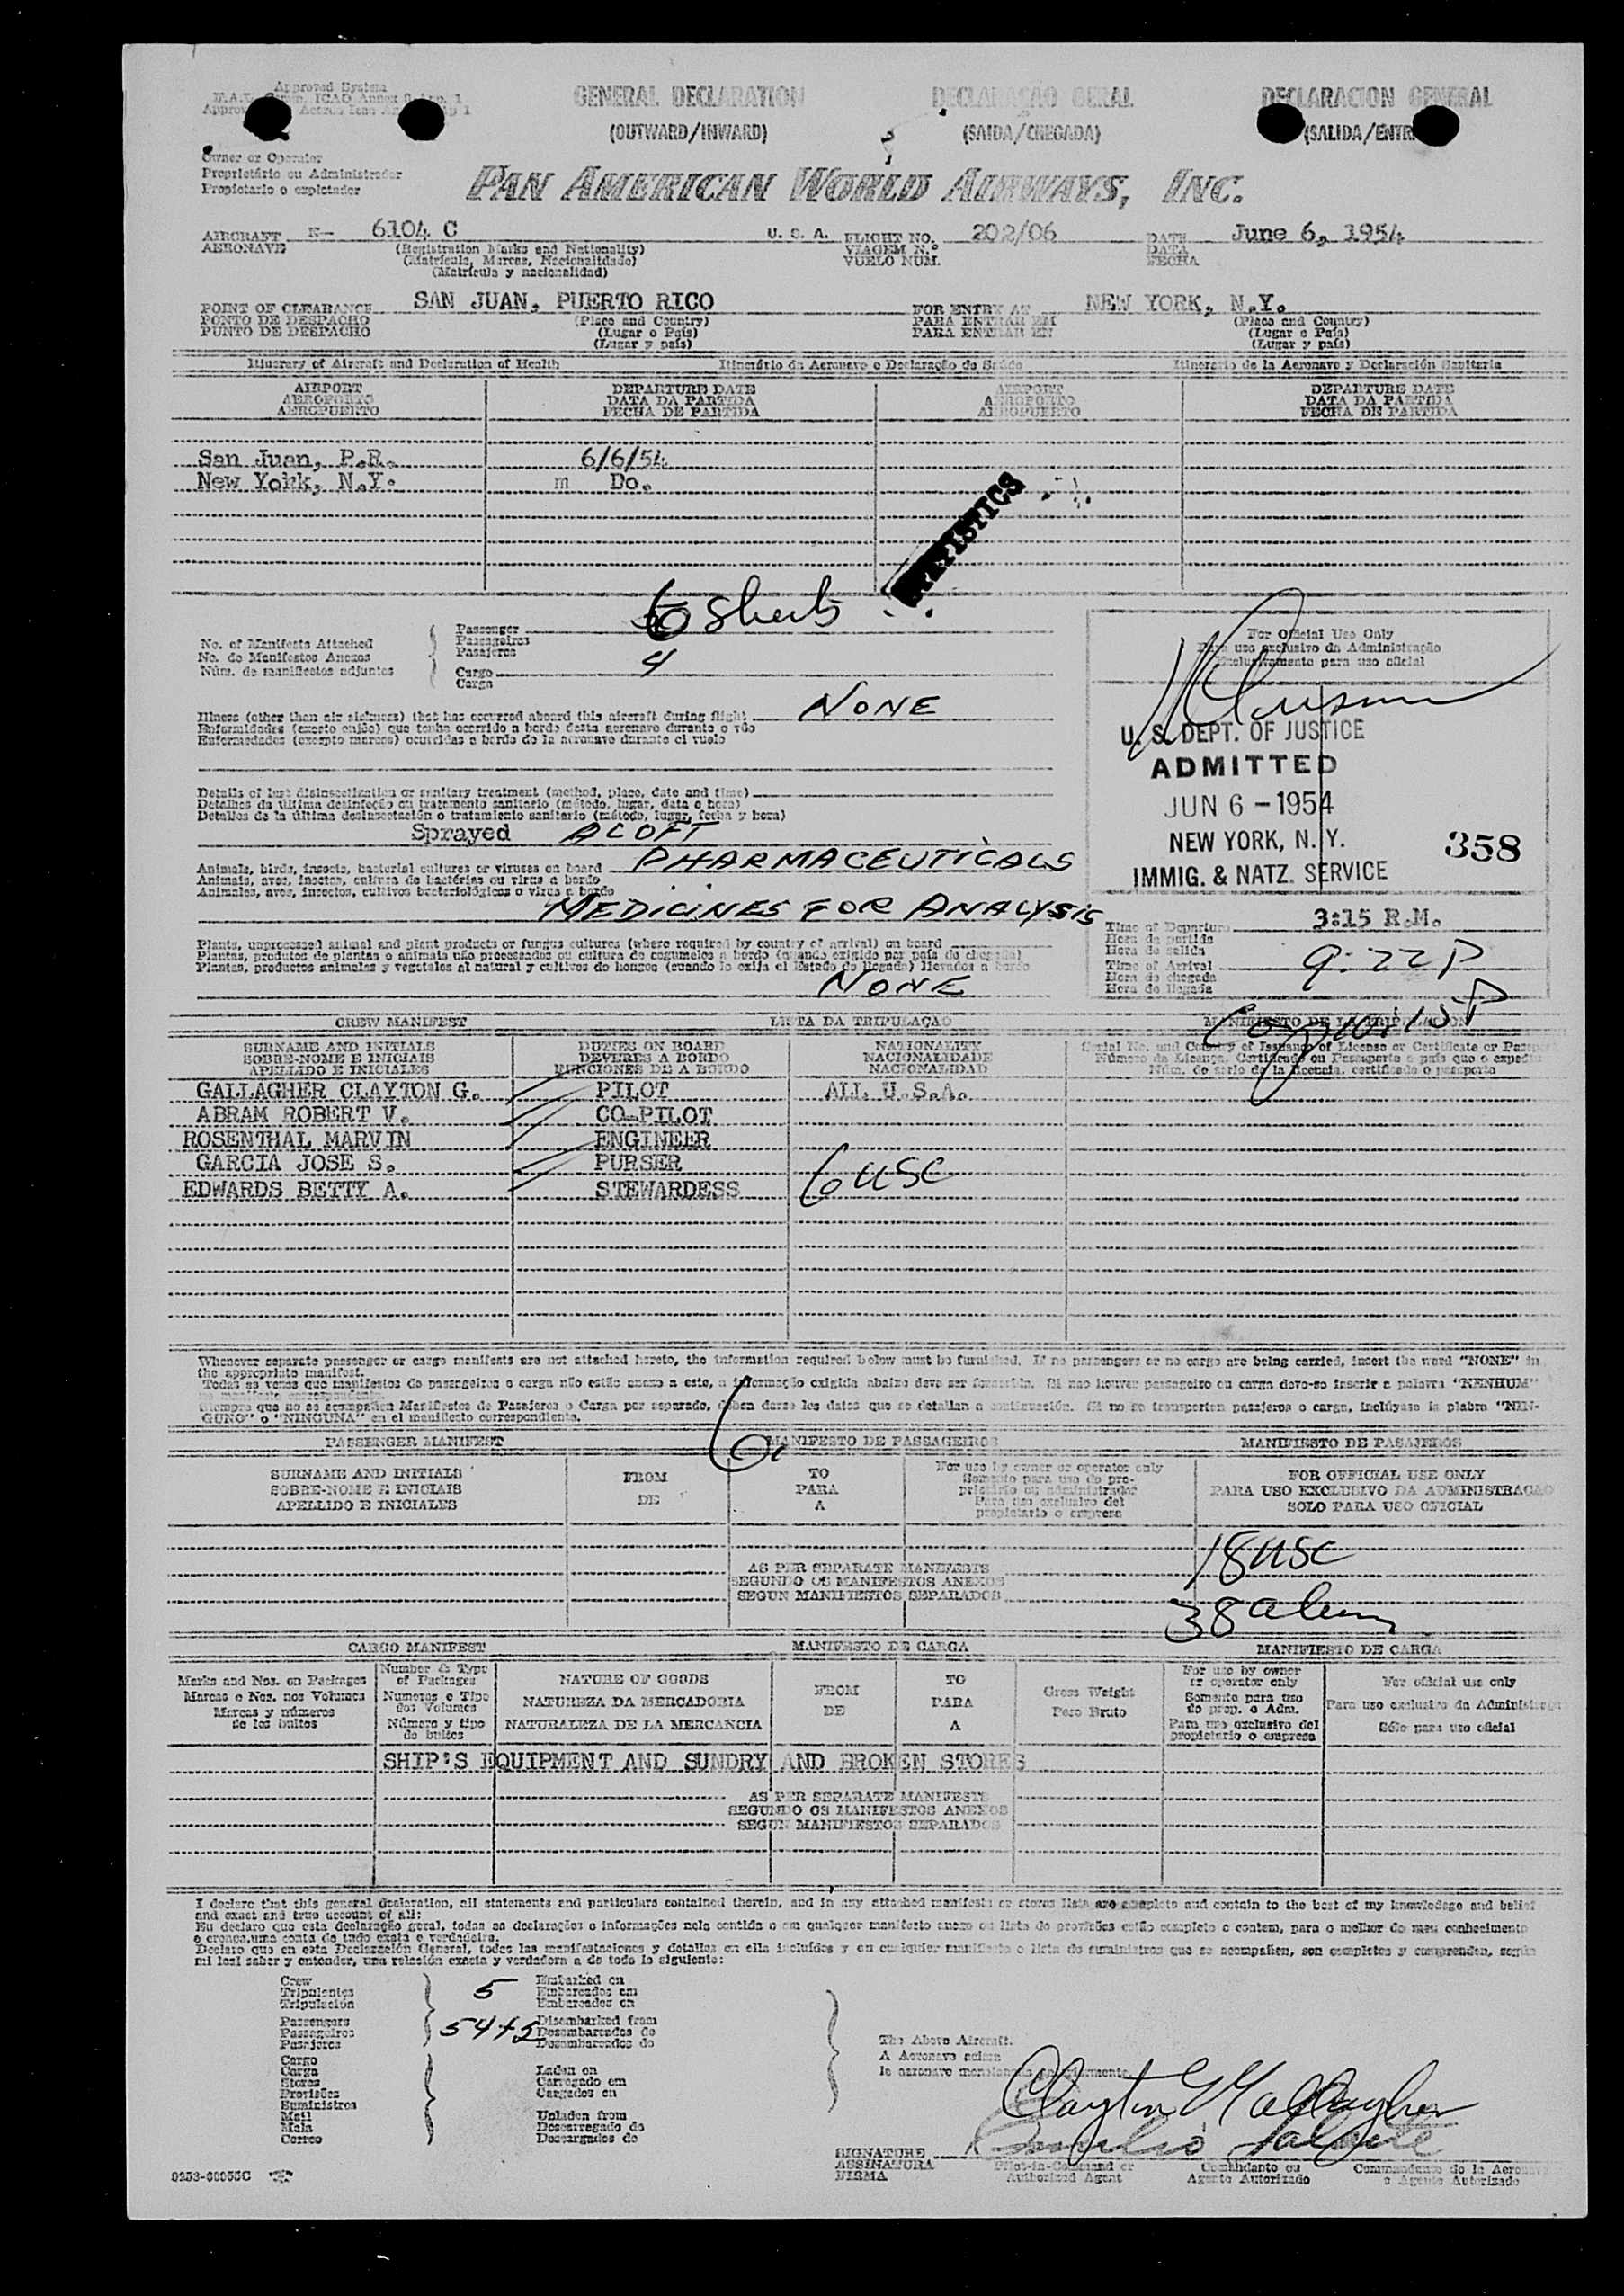 Approved System
GENERAL DECLARATION
(OUTWARD/INWARD)
DECLARAÇAO GERAL
(SAIDA/CHEGADA)
DECLARACION GENERAL
(SALIDA/ENTR
Owner or Operator
Proprietário ou Administrador
Propietario o explotador
PAN AMERICAN WORLD AIRWAYS, INC.
AIRCRAFT N- 6104 C U. S. A. FLIGHT NO. 202/06 DATE June 6, 1954
AERONAVE (Registration Marks and Nationality) VIAGEM N.º DATA
(Matrícula, Marcas, Nacionalidade) VUELO NUM. FECHA
(Matrícula y nacionalidad)
POINT OF CLEARANCE SAN JUAN, PUERTO RICO FOR ENTRY AT NEW YORK, N.Y.
PONTO DE DESPACHO (Place and Country) PARA ENTRAR EM (Place and Country)
PUNTO DE DESPACHO (Lugar o País) PARA ENTRAR EN (Lugar o País)
(Lugar y país) (Lugar y país)
Itinerary of Aircraft and Declaration of Health Itinerário da Aeronave e Declaração de Saúde Itinerario de la Aeronave y Declaración Sanitaria
AIRPORT DEPARTURE DATE AIRPORT DEPARTURE DATE
AEROPORTO DATA DA PARTIDA AEROPORTO DATA DA PARTIDA
AEROPUERTO FECHA DE PARTIDA AEROPUERTO FECHA DE PARTIDA
San Juan, P.R. 6/6/54
New York, N.Y. m Do.
STATISTICS
No. of Manifests Attached Passenger 6 Sheets
No. de Manifestos Anexos Passageiros
Núm. de manifiestos adjuntos Pasajeros
Cargo 4
Carga
For Official Use Only
Para uso exclusivo da Administração
Exclusivamente para uso oficial
Illness (other than air sickness) that has occurred aboard this aircraft during flight NONE
Enfermidades (exceto enjôo) que tenha ocorrido a bordo desta aeronave durante o vôo
Enfermedades (excepto mareos) ocurridas a bordo de la aeronave durante el vuelo
U. S. DEPT. OF JUSTICE
ADMITTED
JUN 6 - 1954
NEW YORK, N. Y. 358
IMMIG. & NATZ. SERVICE
Details of last disinsectization or sanitary treatment (method, place, date and time)
Detalhes da última desinfeção ou tratamento sanitario (método, lugar, data e hora)
Detalles de la última desinsectación o tratamiento sanitario (método, lugar, fecha y hora)
Sprayed ALOFT
Animals, birds, insects, bacterial cultures or viruses on board PHARMACEUTICALS
Animais, aves, insetos, cultura de bactérias ou virus a bordo
Animales, aves, insectos, cultivos bacteriológicos o virus a bordo
MEDICINES FOR ANALYSIS
Time of Departure 3:15 P.M.
Hora da partida
Hora de salida
Time of Arrival 9:22 P
Hora da chegada
Hora de llegada
Plants, unprocessed animal and plant products or fungus cultures (where required by country of arrival) on board
Plantas, produtos de plantas e animais não processados ou cultura de cogumelos a bordo (quando exigido por país de chegada)
Plantas, productos animales y vegetales al natural y cultivos de hongos (cuando lo exija el Estado de llegada) llevados a bordo
NONE
10:15P
CREW MANIFEST LISTA DA TRIPULAÇAO MANIFIESTO DE LA TRIPULACION
SURNAME AND INITIALS DUTIES ON BOARD NATIONALITY Serial No. and Country of Issuance of License or Certificate or Passport
SOBRE-NOME E INICIAIS DEVERES A BORDO NACIONALIDADE Número da Licença, Certificado ou Passaporte e país que o expediu
APELLIDO E INICIALES FUNCIONES DE A BORDO NACIONALIDAD Núm. de serie de la licencia, certificado o pasaporte
GALLAGHER CLAYTON G. PILOT ALL U.S.A.
ABRAM ROBERT V. CO-PILOT
ROSENTHAL MARVIN ENGINEER
GARCIA JOSE S. PURSER
EDWARDS BETTY A. STEWARDESS 6 USC
Whenever separate passenger or cargo manifests are not attached hereto, the information required below must be furnished. If no passengers or no cargo are being carried, insert the word "NONE" in
the appropriate manifest.
Todas as vezes que manifestos de passageiros e carga não estão anexo a este, a informação exigida abaixo deve ser fornecida. Si nao houver passageiro ou carga deve-se inserir a palavra "NENHUM"
Siempre que no se acompañen Manifiestos de Pasajeros o Carga por separado, deben darse los datos que se detallan a continuación. Si no se transporten pasajeros o carga, inclúyase la plabra "NIN-
GUNO" o "NINGUNA" en el manifiesto correspondiente.
6
PASSENGER MANIFEST MANIFESTO DE PASSAGEIROS MANIFIESTO DE PASAJEROS
SURNAME AND INITIALS FROM TO For use by owner or operator only FOR OFFICIAL USE ONLY
SOBRE-NOME E INICIAIS DE PARA Somente para uso de pro- PARA USO EXCLUSIVO DA ADMINISTRAÇAO
APELLIDO E INICIALES A prietário ou administrador SOLO PARA USO OFICIAL
Para uso exclusivo del
propietario o empresa
18 USC
AS PER SEPARATE MANIFESTS
SEGUNDO OS MANIFESTOS ANEXOS
SEGUN MANIFIESTOS SEPARADOS
38 alien
CARGO MANIFEST MANIFESTO DE CARGA MANIFIESTO DE CARGA
Marks and Nos. on Packages Number & Type of Packages NATURE OF GOODS FROM TO Gross Weight For use by owner or operator only For official use only
Marcas e Nos. nos Volumes Numeros e Tipo dos Volumes NATUREZA DA MERCADORIA DE PARA Peso Bruto Somente para uso do prop. o Adm. Para uso exclusivo da Administração
Marcas y números de los bultos Número y tipo de bultos NATURALEZA DE LA MERCANCIA A Para uso exclusivo del propietario o empresa Sólo para uso oficial
SHIP'S EQUIPMENT AND SUNDRY AND BROKEN STORES
AS PER SEPARATE MANIFESTS
SEGUNDO OS MANIFESTOS ANEXOS
SEGUN MANIFIESTOS SEPARADOS
I declare that this general declaration, all statements and particulars contained therein, and in any attached manifests or stores lists are complete and contain to the best of my knowledge and belief
and exact and true account of all:
Eu declaro que esta declaração geral, todas as declarações e informações nela contida e em qualquer manifesto anexo ou lista de provisões estão completo e contem, para o melhor do meu conhecimento
e crença, uma conta de tudo exata e verdadeira.
Declaro que en esta Declaración General, todos las manifestaciones y detalles en ella incluídos y en cualquier manifiesto o lista de suministros que se acompañen, son completos y comprenden, según
mi leal saber y entender, una relación exacta y verdadera a de todo lo siguiente:
Crew 5 Embarked on
Tripulantes Embarcados em
Tripulación Embarcados en
Passengers 54+2 Disembarked from
Passageiros Desembarcados do
Pasajeros Desembarcados de
Cargo
Carga Laden on
Stores Carregado em
Provisões Cargados en
Suministros
Mail Unladen from
Mala Descarregado do
Correo Descargados de
The Above Aircraft.
A Aeronave acima
Clayton G Gallagher
SIGNATURE
ASSINATURA Pilot-in-Command or Comandante ou Commandante de la Aeronave
FIRMA Authorized Agent Agente Autorizado o Agente Autorizado